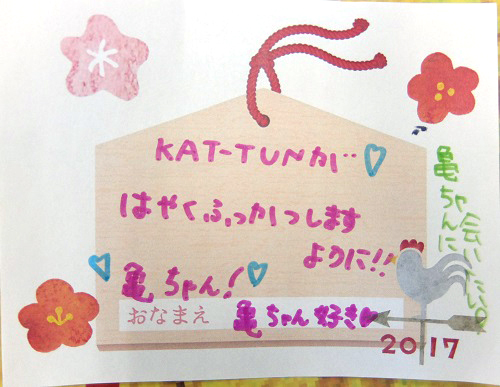 KAT-TUNが♡
はやくふっかつします
ように!!
♡亀ちゃん!♡
おなまえ 亀ちゃん好き♥
亀ちゃんに
会いたい
2017